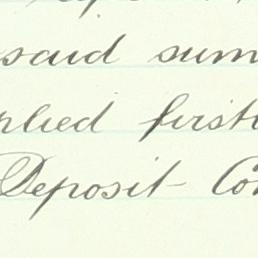 said sum
plied first
Deposit Co